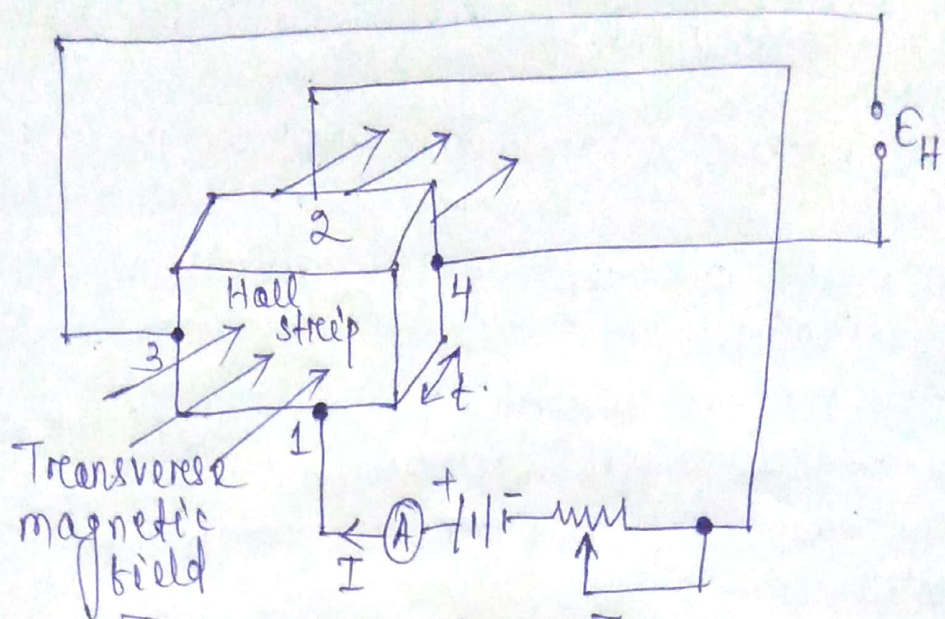 ε_H
2
Hall
strip
4
3
t.
1
Transverse
magnetic
field
+
-
A
I